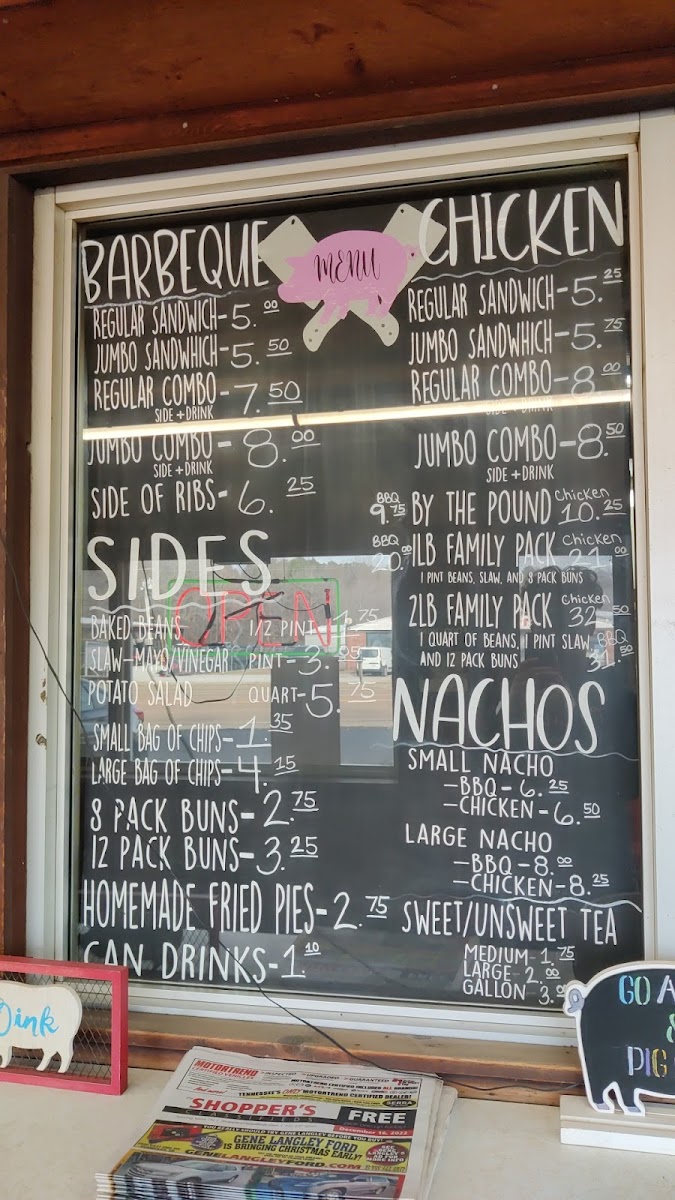 MENU
BARBEQUE
REGULAR SANDWICH-5.00
JUMBO SANDWHICH-5.50
REGULAR COMBO-7.50
SIDE + DRINK
JUMBO COMBO-8.00
SIDE + DRINK
SIDE OF RIBS-6.25
SIDES
OPEN
BAKED BEANS 1/2 PINT-1.75
SLAW-MAYO/VINEGAR PINT-3.
POTATO SALAD QUART-5.75
SMALL BAG OF CHIPS-1.35
LARGE BAG OF CHIPS-4.15
8 PACK BUNS-2.75
12 PACK BUNS-3.25
HOMEMADE FRIED PIES-2.75
CAN DRINKS-1.10
CHICKEN
REGULAR SANDWICH-5.25
JUMBO SANDWHICH-5.75
REGULAR COMBO-8.00
SIDE + DRINK
JUMBO COMBO-8.50
SIDE + DRINK
BBQ 9.75 BY THE POUND Chicken 10.25
BBQ 20.00 1LB FAMILY PACK Chicken 21.00
1 PINT BEANS, SLAW, AND 8 PACK BUNS
2LB FAMILY PACK Chicken 32.50
1 QUART OF BEANS, 1 PINT SLAW, BBQ
AND 12 PACK BUNS 31.50
NACHOS
SMALL NACHO
-BBQ-6.25
-CHICKEN-6.50
LARGE NACHO
-BBQ-8.00
-CHICKEN-8.25
SWEET/UNSWEET TEA
MEDIUM-1.75
LARGE-2.00
GALLON 3.
Oink
GO A
&
PIG
MOTORTREND
CERTIFIED VEHICLES
TENNESSEE'S ONLY MOTORTREND CERTIFIED DEALER!
SERRA
SHOPPER'S
FREE
December 16, 2023
GENE LANGLEY FORD
IS BRINGING CHRISTMAS EARLY!
GENELANGLEYFORD.COM